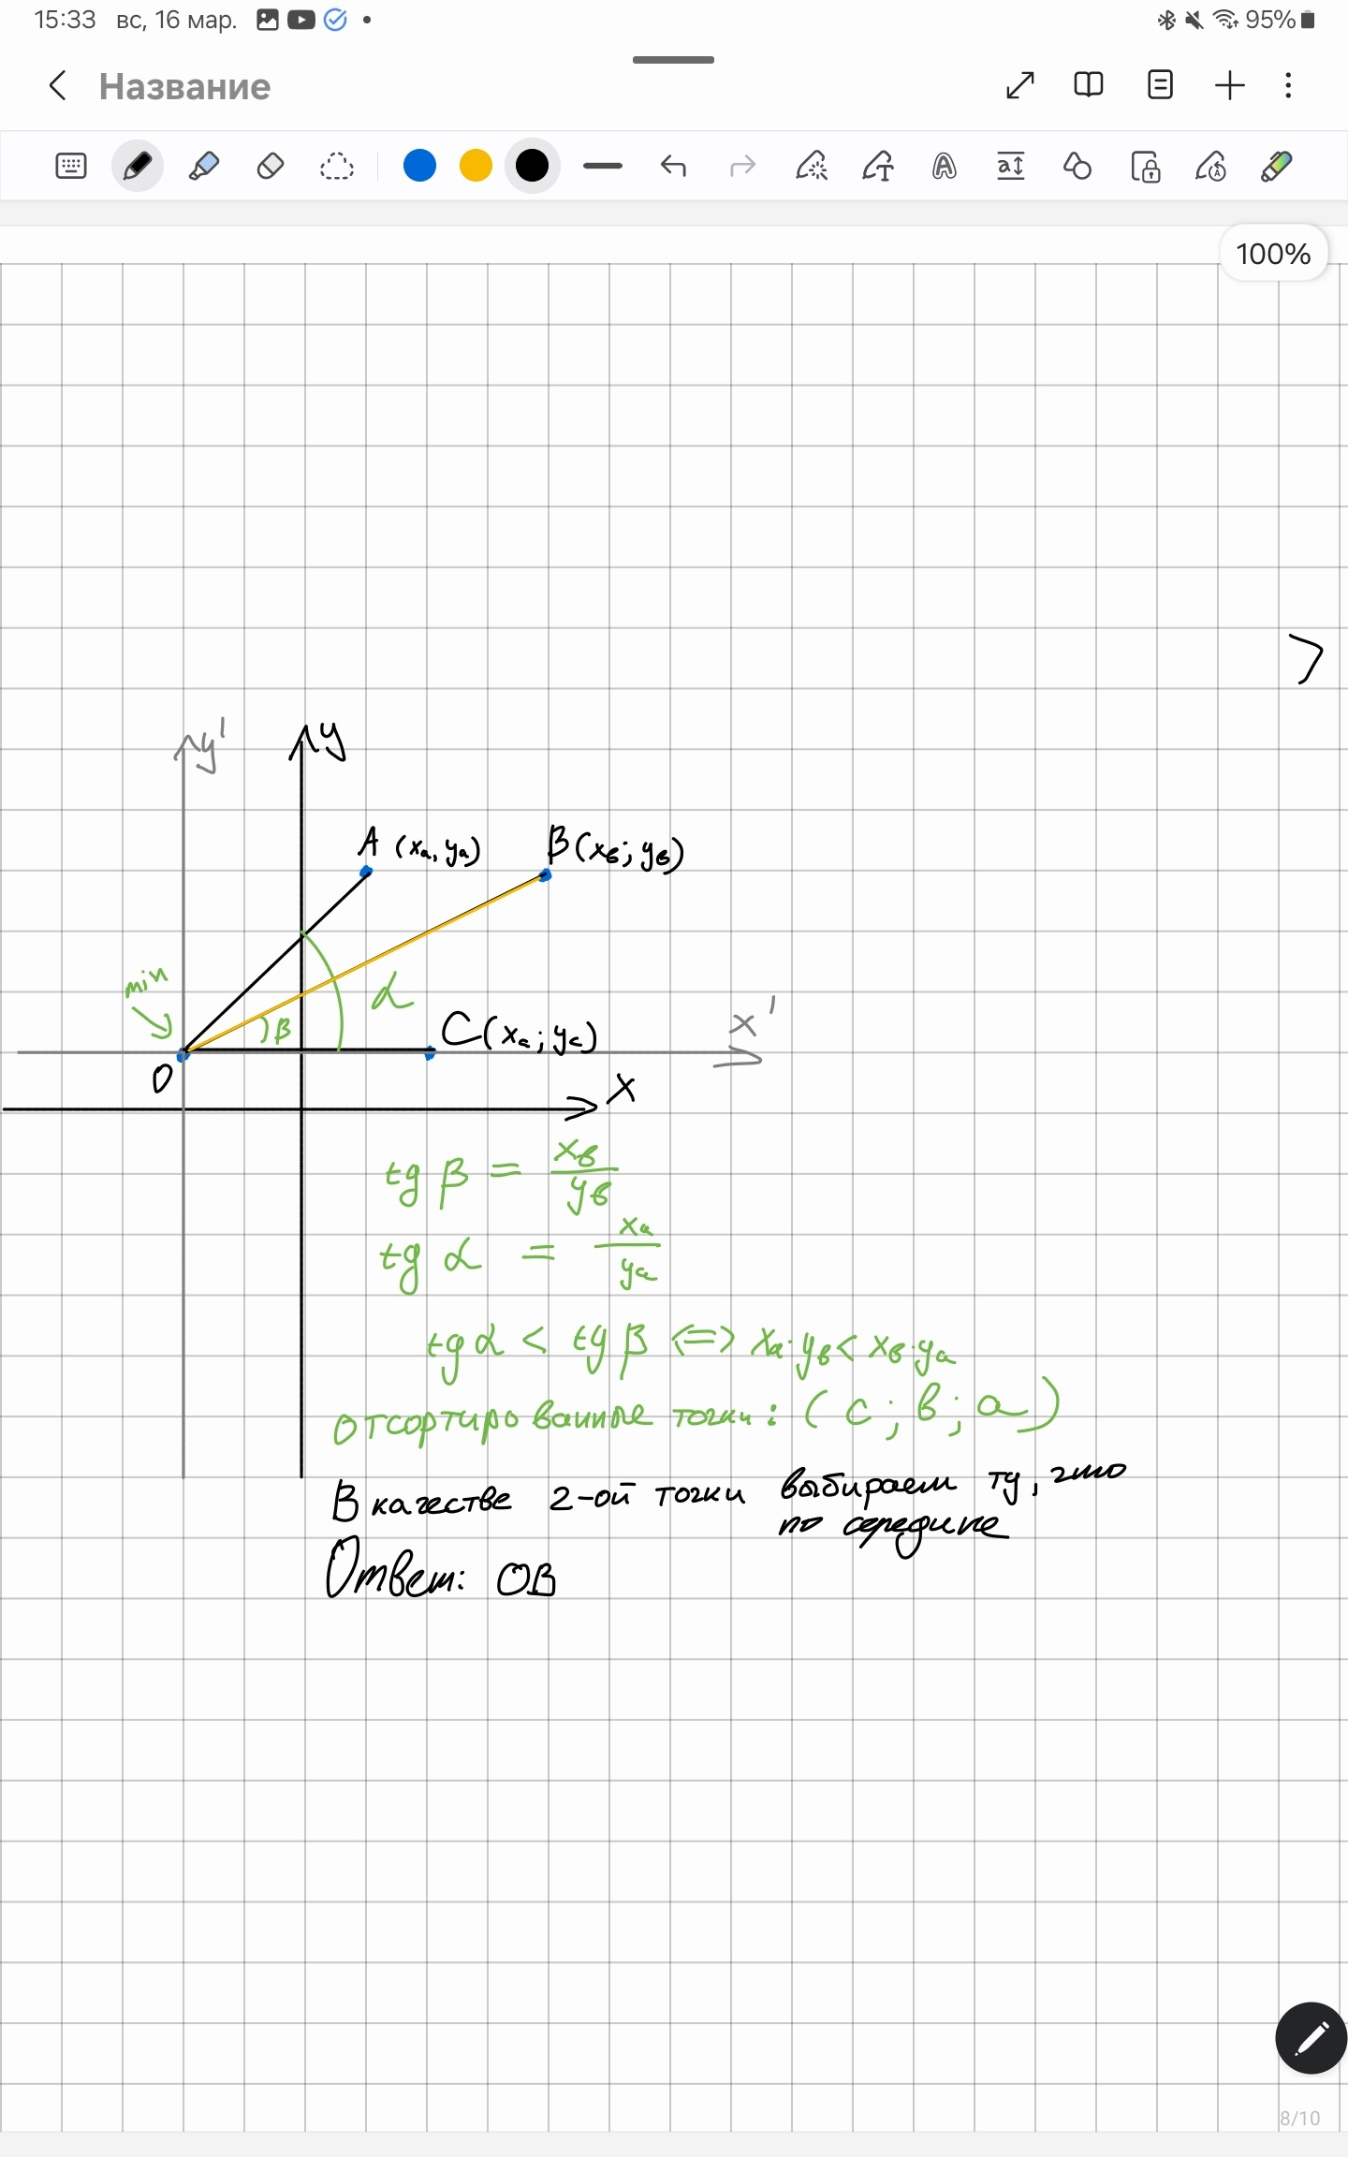 15:33 вс, 16 мар. 95%
Название
100%
y' y
A (xa, ya) B(xв; yв)
min
α
β
C(xa; yc) x'
O
x
tg β = xв/yв
tg α = xa/ya
tg α < tg β <=> xa·yв < xв·ya
отсортированные точки: (c; в; a)
В качестве 2-ой точки выбираем ту, что
по середине
Ответ: OB
8/10